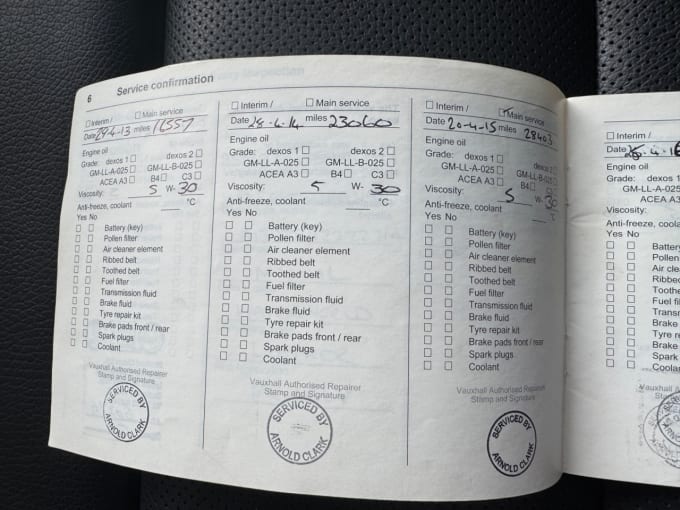 6 Service confirmation
☐ Interim / ☐ Main service
Date 29-4-13 miles 16557
Engine oil
Grade: dexos 1 ☐ dexos 2 ☐
GM-LL-A-025 ☐ GM-LL-B-025 ☐
ACEA A3 ☐ B4 ☐ C3 ☐
Viscosity: 5 W- 30
Anti-freeze, coolant °C
Yes No
☐ ☐ Battery (key)
☐ ☐ Pollen filter
☐ ☐ Air cleaner element
☐ ☐ Ribbed belt
☐ ☐ Toothed belt
☐ ☐ Fuel filter
☐ ☐ Transmission fluid
☐ ☐ Brake fluid
☐ ☐ Tyre repair kit
☐ ☐ Brake pads front / rear
☐ ☐ Spark plugs
☐ ☐ Coolant
Vauxhall Authorised Repairer
Stamp and Signature
SERVICED BY
ARNOLD CLARK
☐ Interim / ☐ Main service
Date 28.4.14 miles 23060
Engine oil
Grade: dexos 1 ☐ dexos 2 ☐
GM-LL-A-025 ☐ GM-LL-B-025 ☐
ACEA A3 ☐ B4 ☐ C3 ☐
Viscosity: 5 W- 30
Anti-freeze, coolant °C
Yes No
☐ ☐ Battery (key)
☐ ☐ Pollen filter
☐ ☐ Air cleaner element
☐ ☐ Ribbed belt
☐ ☐ Toothed belt
☐ ☐ Fuel filter
☐ ☐ Transmission fluid
☐ ☐ Brake fluid
☐ ☐ Tyre repair kit
☐ ☐ Brake pads front / rear
☐ ☐ Spark plugs
☐ ☐ Coolant
Vauxhall Authorised Repairer
Stamp and Signature
SERVICED BY
ARNOLD CLARK
☐ Interim / ☑ Main service
Date 20-4-15 miles 28403
Engine oil
Grade: dexos 1 ☐ dexos 2 ☐
GM-LL-A-025 ☐ GM-LL-B-025 ☐
ACEA A3 ☐ B4 ☐ C3 ☐
Viscosity: 5 W- 30
Anti-freeze, coolant °C
Yes No
☐ ☐ Battery (key)
☐ ☐ Pollen filter
☐ ☐ Air cleaner element
☐ ☐ Ribbed belt
☐ ☐ Toothed belt
☐ ☐ Fuel filter
☐ ☐ Transmission fluid
☐ ☐ Brake fluid
☐ ☐ Tyre repair kit
☐ ☐ Brake pads front / rear
☐ ☐ Spark plugs
☐ ☐ Coolant
Vauxhall Authorised Repairer
Stamp and Signature
SERVICED BY
ARNOLD CLARK
☐ Interim /
Date
Engine oil
Grade: dexos 1
GM-LL-A-025
ACEA A3
Viscosity:
Anti-freeze, coola
Yes No
☐ ☐ Battery
☐ ☐ Pollen
☐ ☐ Air cle
☐ ☐ Ribbed
☐ ☐ Tooth
☐ ☐ Fuel fi
☐ ☐ Trans
☐ ☐ Brake
☐ ☐ Tyre r
☐ ☐ Brake
☐ ☐ Spark
☐ ☐ Coolan
Vauxhall